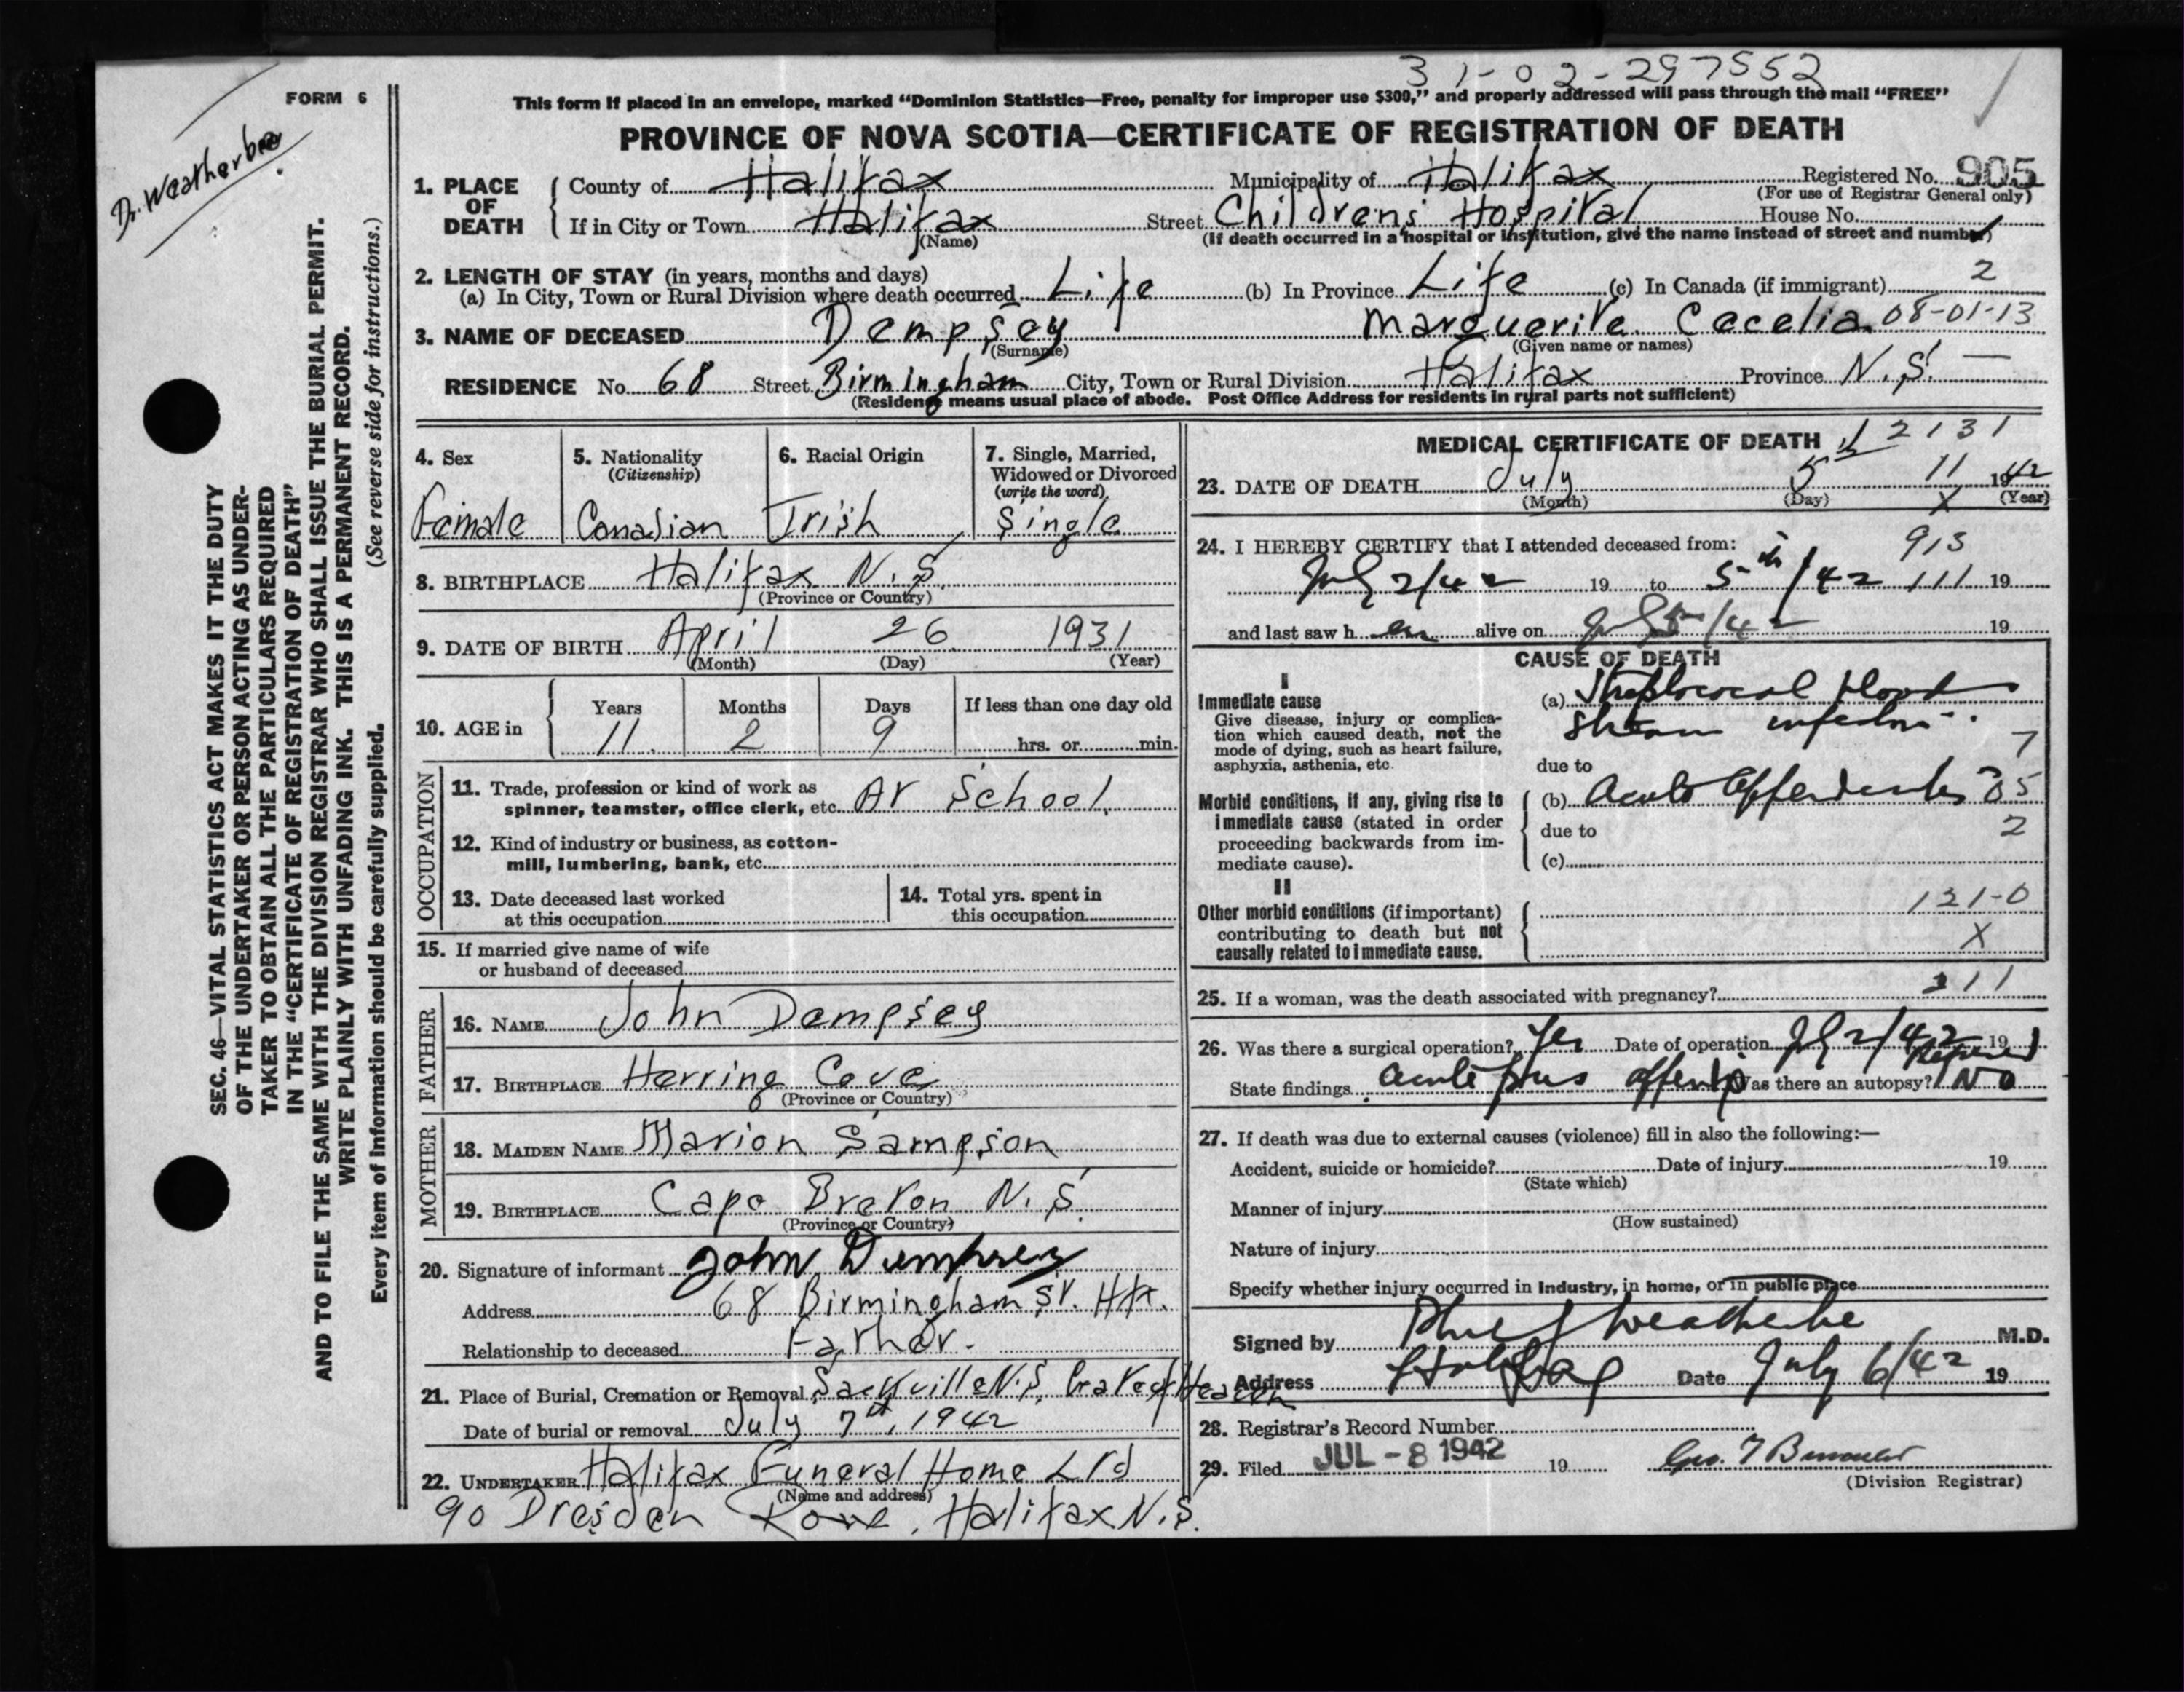 31-02-297552
FORM 6
Dr. Weatherbee
This form if placed in an envelope, marked “Dominion Statistics—Free, penalty for improper use $300,” and properly addressed will pass through the mail “FREE”
PROVINCE OF NOVA SCOTIA—CERTIFICATE OF REGISTRATION OF DEATH
1. PLACE OF DEATH
County of Halifax Municipality of Halifax Registered No. 905
(For use of Registrar General only)
If in City or Town Halifax Street Childrens Hospital House No.
(Name) (If death occurred in a hospital or institution, give the name instead of street and number)
2. LENGTH OF STAY (in years, months and days)
(a) In City, Town or Rural Division where death occurred Life (b) In Province Life (c) In Canada (if immigrant) 2
3. NAME OF DECEASED Dempsey Marguerite Cecelia 08-01-13
(Surname) (Given name or names)
RESIDENCE No. 68 Street Birmingham City, Town or Rural Division Halifax Province N.S. —
(Residence means usual place of abode. Post Office Address for residents in rural parts not sufficient)
SEC. 46—VITAL STATISTICS ACT MAKES IT THE DUTY
OF THE UNDERTAKER OR PERSON ACTING AS UNDER-
TAKER TO OBTAIN ALL THE PARTICULARS REQUIRED
IN THE “CERTIFICATE OF REGISTRATION OF DEATH”
AND TO FILE THE SAME WITH THE DIVISION REGISTRAR WHO SHALL ISSUE THE BURIAL PERMIT.
WRITE PLAINLY WITH UNFADING INK. THIS IS A PERMANENT RECORD.
Every item of information should be carefully supplied. (See reverse side for instructions.)
4. Sex
Female
5. Nationality
(Citizenship)
Canadian
6. Racial Origin
Irish
7. Single, Married,
Widowed or Divorced
(write the word)
Single
8. BIRTHPLACE Halifax N.S.
(Province or Country)
9. DATE OF BIRTH April 26 1931
(Month) (Day) (Year)
10. AGE in
Years Months Days If less than one day old
11. 2 9 hrs. or min.
OCCUPATION
11. Trade, profession or kind of work as
spinner, teamster, office clerk, etc. At School
12. Kind of industry or business, as cotton-
mill, lumbering, bank, etc.
13. Date deceased last worked
at this occupation
14. Total yrs. spent in
this occupation
15. If married give name of wife
or husband of deceased
FATHER
16. NAME John Dempsey
17. BIRTHPLACE Herring Cove
(Province or Country)
MOTHER
18. MAIDEN NAME Marion Sampson
19. BIRTHPLACE Cape Breton N.S.
(Province or Country)
20. Signature of informant John Dempsey
Address 68 Birmingham St. Hfx.
Relationship to deceased Father.
21. Place of Burial, Cremation or Removal Sackville N.S. Gate of Heaven
Date of burial or removal July 7th, 1942
22. UNDERTAKER Halifax Funeral Home Ltd
(Name and address)
90 Dresden Row, Halifax N.S.
MEDICAL CERTIFICATE OF DEATH 12131
23. DATE OF DEATH July 5th 11 1942
(Month) (Day) X (Year)
24. I HEREBY CERTIFY that I attended deceased from: 913
July 2/42 19 to 5th/42 111 19
and last saw her alive on July 5/42 19
CAUSE OF DEATH
I
Immediate cause
Give disease, injury or complica-
tion which caused death, not the
mode of dying, such as heart failure,
asphyxia, asthenia, etc.
(a) Streptococcal blood
stream infection
7
due to
Morbid conditions, if any, giving rise to
immediate cause (stated in order
proceeding backwards from im-
mediate cause).
(b) Acute Appendicitis 05
due to 2
(c)
II
Other morbid conditions (if important)
contributing to death but not
causally related to immediate cause.
121-0
X
25. If a woman, was the death associated with pregnancy? 211
26. Was there a surgical operation? Yes Date of operation July 2/42 19
State findings acute pus Was there an autopsy? No
27. If death was due to external causes (violence) fill in also the following:—
Accident, suicide or homicide? Date of injury 19
(State which)
Manner of injury
(How sustained)
Nature of injury
Specify whether injury occurred in Industry, in home, or in public place
Signed by Weatherbe M.D.
Address Halifax Date July 6/42 19
28. Registrar's Record Number
29. Filed JUL - 8 1942 19
(Division Registrar)